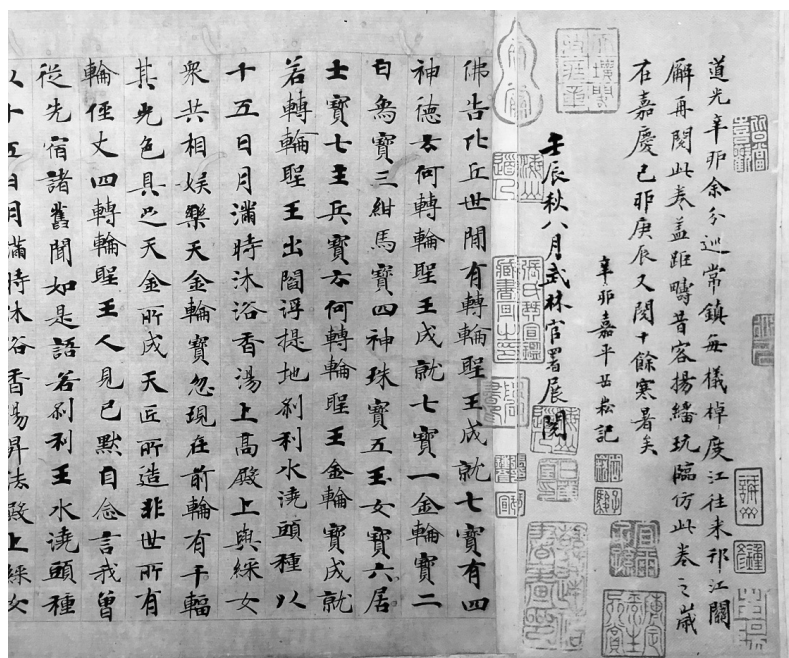 道光辛卯余分巡常鎮每檥棹度江往来邗江關
廨再閱此卷盖距疇昔客揚繙玩臨仿此卷之歲
在嘉慶己卯庚辰又閱十餘寒暑矣
辛卯嘉平岳崧記
壬辰秋八月武林官署展閱
佛告比丘世閒有轉輪聖王成就七寶有四
神德云何轉輪聖王成就七寶一金輪寶二
白象寶三紺馬寶四神珠寶五玉女寶六居
士寶七主兵寶云何轉輪聖王金輪寶成就
若轉輪聖王出閻浮提地刹利水澆頭種以
十五日月滿時沐浴香湯上高殿上與綵女
眾共相娛樂天金輪寶忽現在前輪有千輻
其光色具足天金所成天匠所造非世所有
輪徑丈四轉輪聖王人見已默自念言我曾
從先宿諸舊聞如是語若刹利王水澆頭種
以十五日月滿時沐浴香湯昇法殿上綵女